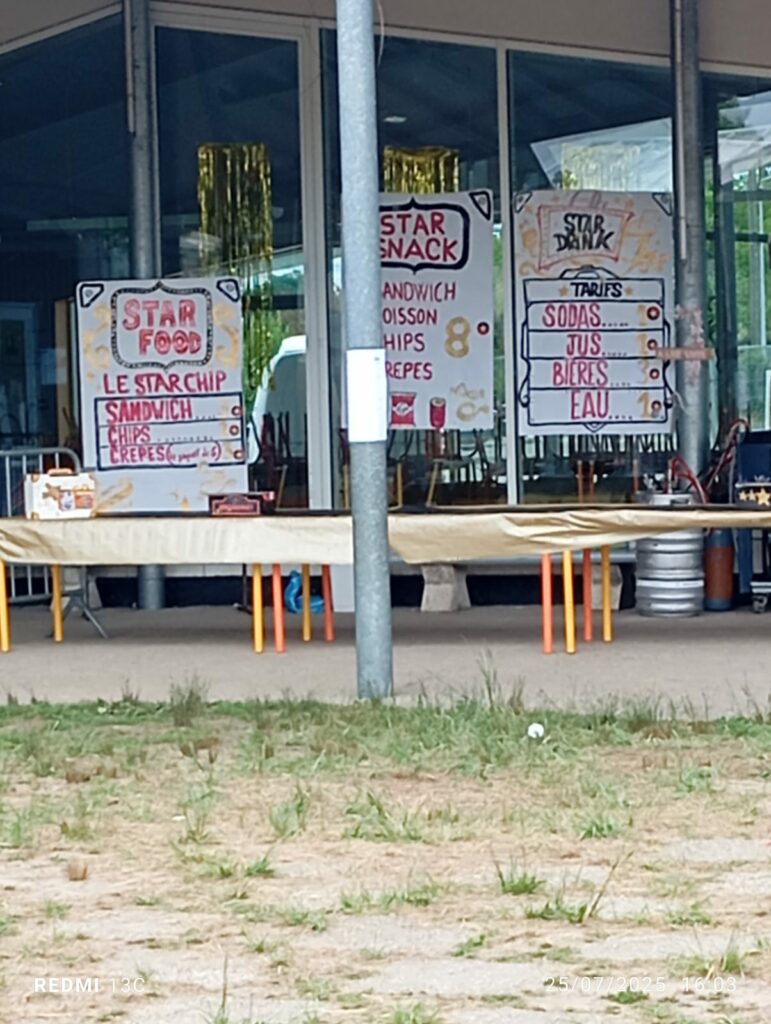 STAR
FOOD
LE STARCHIP
SANDWICH....
CHIPS........
CREPES (le paquet de 6)
STAR
SNACK
ANDWICH
OISSON
HIPS 8
REPES
STAR
DRINK
TARIFS
SODAS....
JUS....
BIERES...
EAU....
REDMI 13C
25/07/2025 16:03